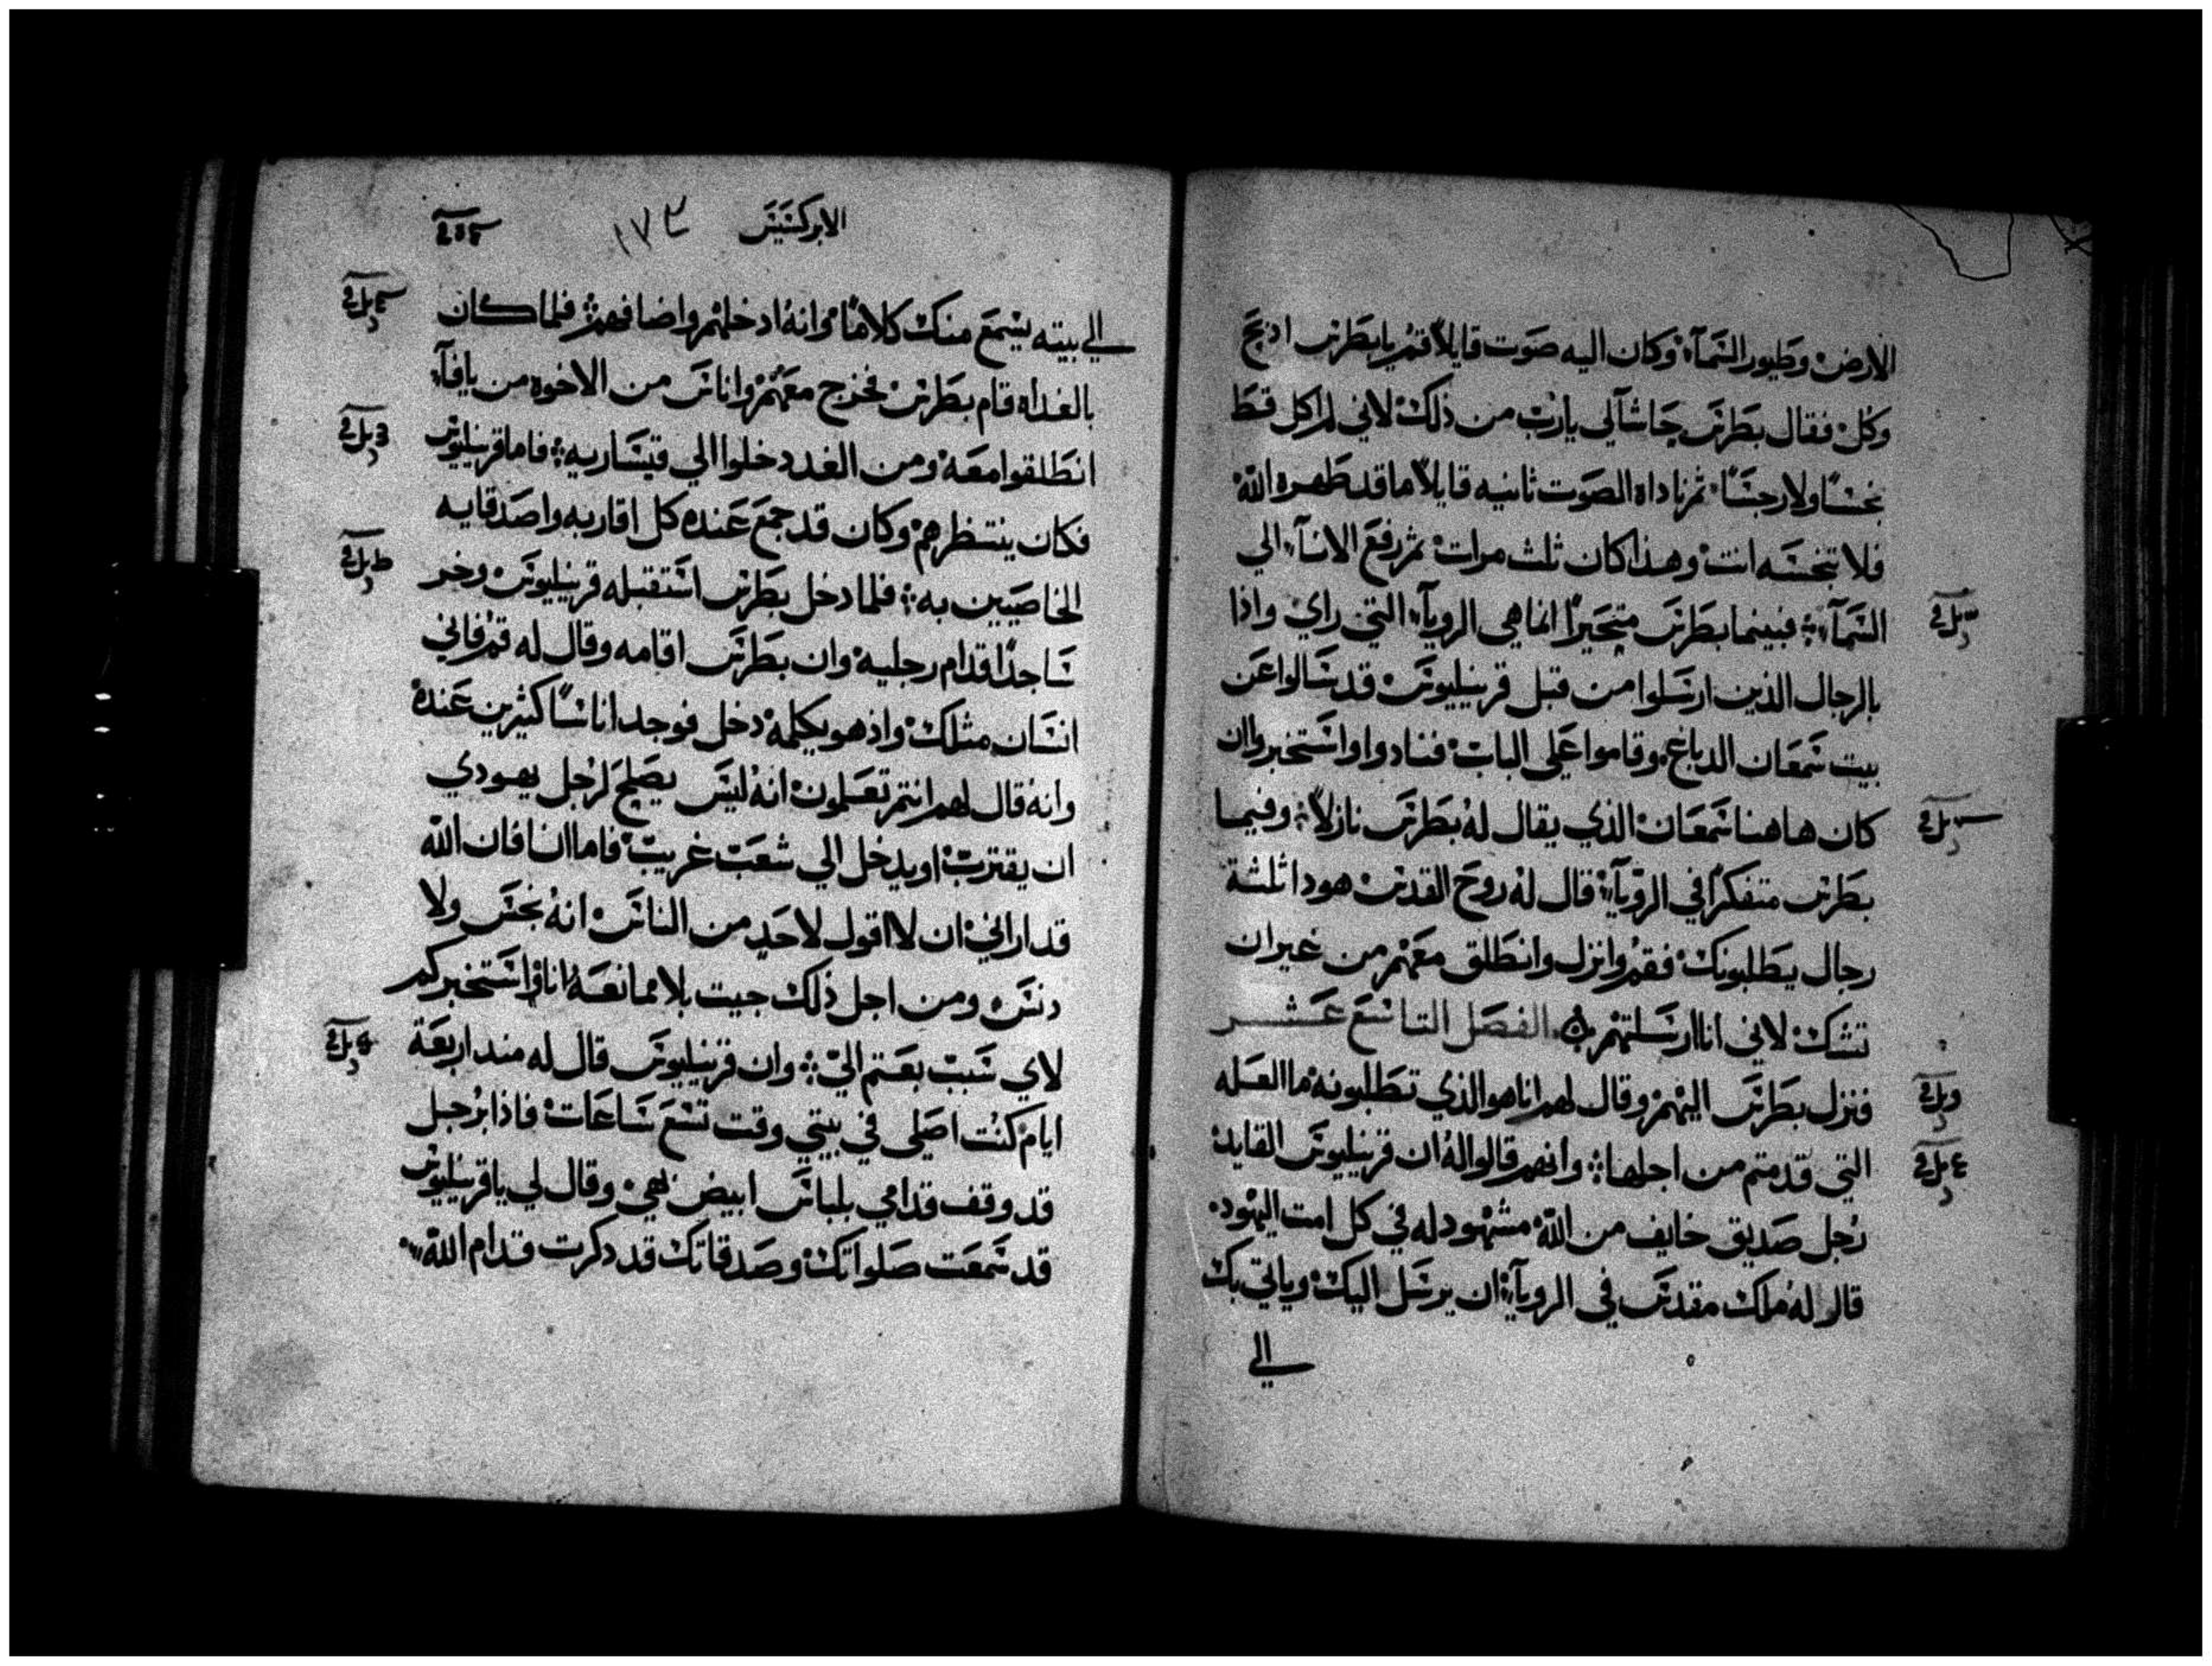 الارض وطيور السمآء وكان اليه صوت قايلاً قم يا بطرس اذبح
وكل فقال بطرس حاشآلي يارب من ذلك لاني لم اكل قط
نجسًا ولا رجسًا ثم ناداه الصوت ثانيه قايلاً ما قد طهره الله
فلا تنجسه انت وهذا كان ثلث مرات ثم رفع الانآء الي
السمآء فبينما بطرس متحيرًا انما هي الروياء التي راي واذا
بالرجال الذين ارسلوا من قبل قرنيليوس قد سالوا عن
بيت سمعان الدباغ وقاموا علي الباب فنادوا واستخبروا ان
كان هاهنا سمعان الذي يقال له بطرس نازلاً وفيما
بطرس متفكرًا في الروياء قال له روح القدس هودا ثلثة
رجال يطلبونك فقم وانزل وانطلق معهم من غير ان
تشك لاني انا ارسلتهم الفصل التاسع عشر
فنزل بطرس اليهم وقال لهم انا هو الذي تطلبونه ما العله
التي قدمتم من اجلها وانهم قالوا له ان قرنيليوس القايد
رجل صديق خايف من الله مشهود له في كل امت اليهود
قال له ملك مقدس في الروياء ان يرسل اليك وياتي بك
الي
الابركسيس ١٧٣
الي بيته يسمع منك كلامًا وانه ادخلهم واضافهم فلما كان
بالغداه قام بطرس فخرج معهم واناس من الاخوه من يافآء
انطلقوا معه ومن الغد دخلوا الي قيساريه فاما قرنيليوس
فكان ينتظرهم وكان قد جمع عنده كل اقاربه واصدقايه
الخاصيين به فلما دخل بطرس استقبله قرنيليوس وخر
ساجدًا قدام رجليه وان بطرس اقامه وقال له قم فاني
انسان مثلك واذ هو يكلمه دخل فوجد اناسًا كثيرين عنده
وانه قال لهم انتم تعلمون انه ليس يصلح لرجل يهودي
ان يقترب او يدخل الي شعب غريب فاما انا فان الله
قد اراني ان لا اقول لاحد من الناس انه نجس ولا
دنس ومن اجل ذلك جيت بلا ممانعه انا واستخبركم
لاي سبب بعتم الي وان قرنيليوس قال له مند اربعة
ايام كنت اصلي في بيتي وقت تسع ساعات فاذا برجل
قد وقف قدامي بلباس ابيض بهي وقال لي يا قرنيليوس
قد سمعت صلواتك وصدقاتك قد دكرت قدام الله